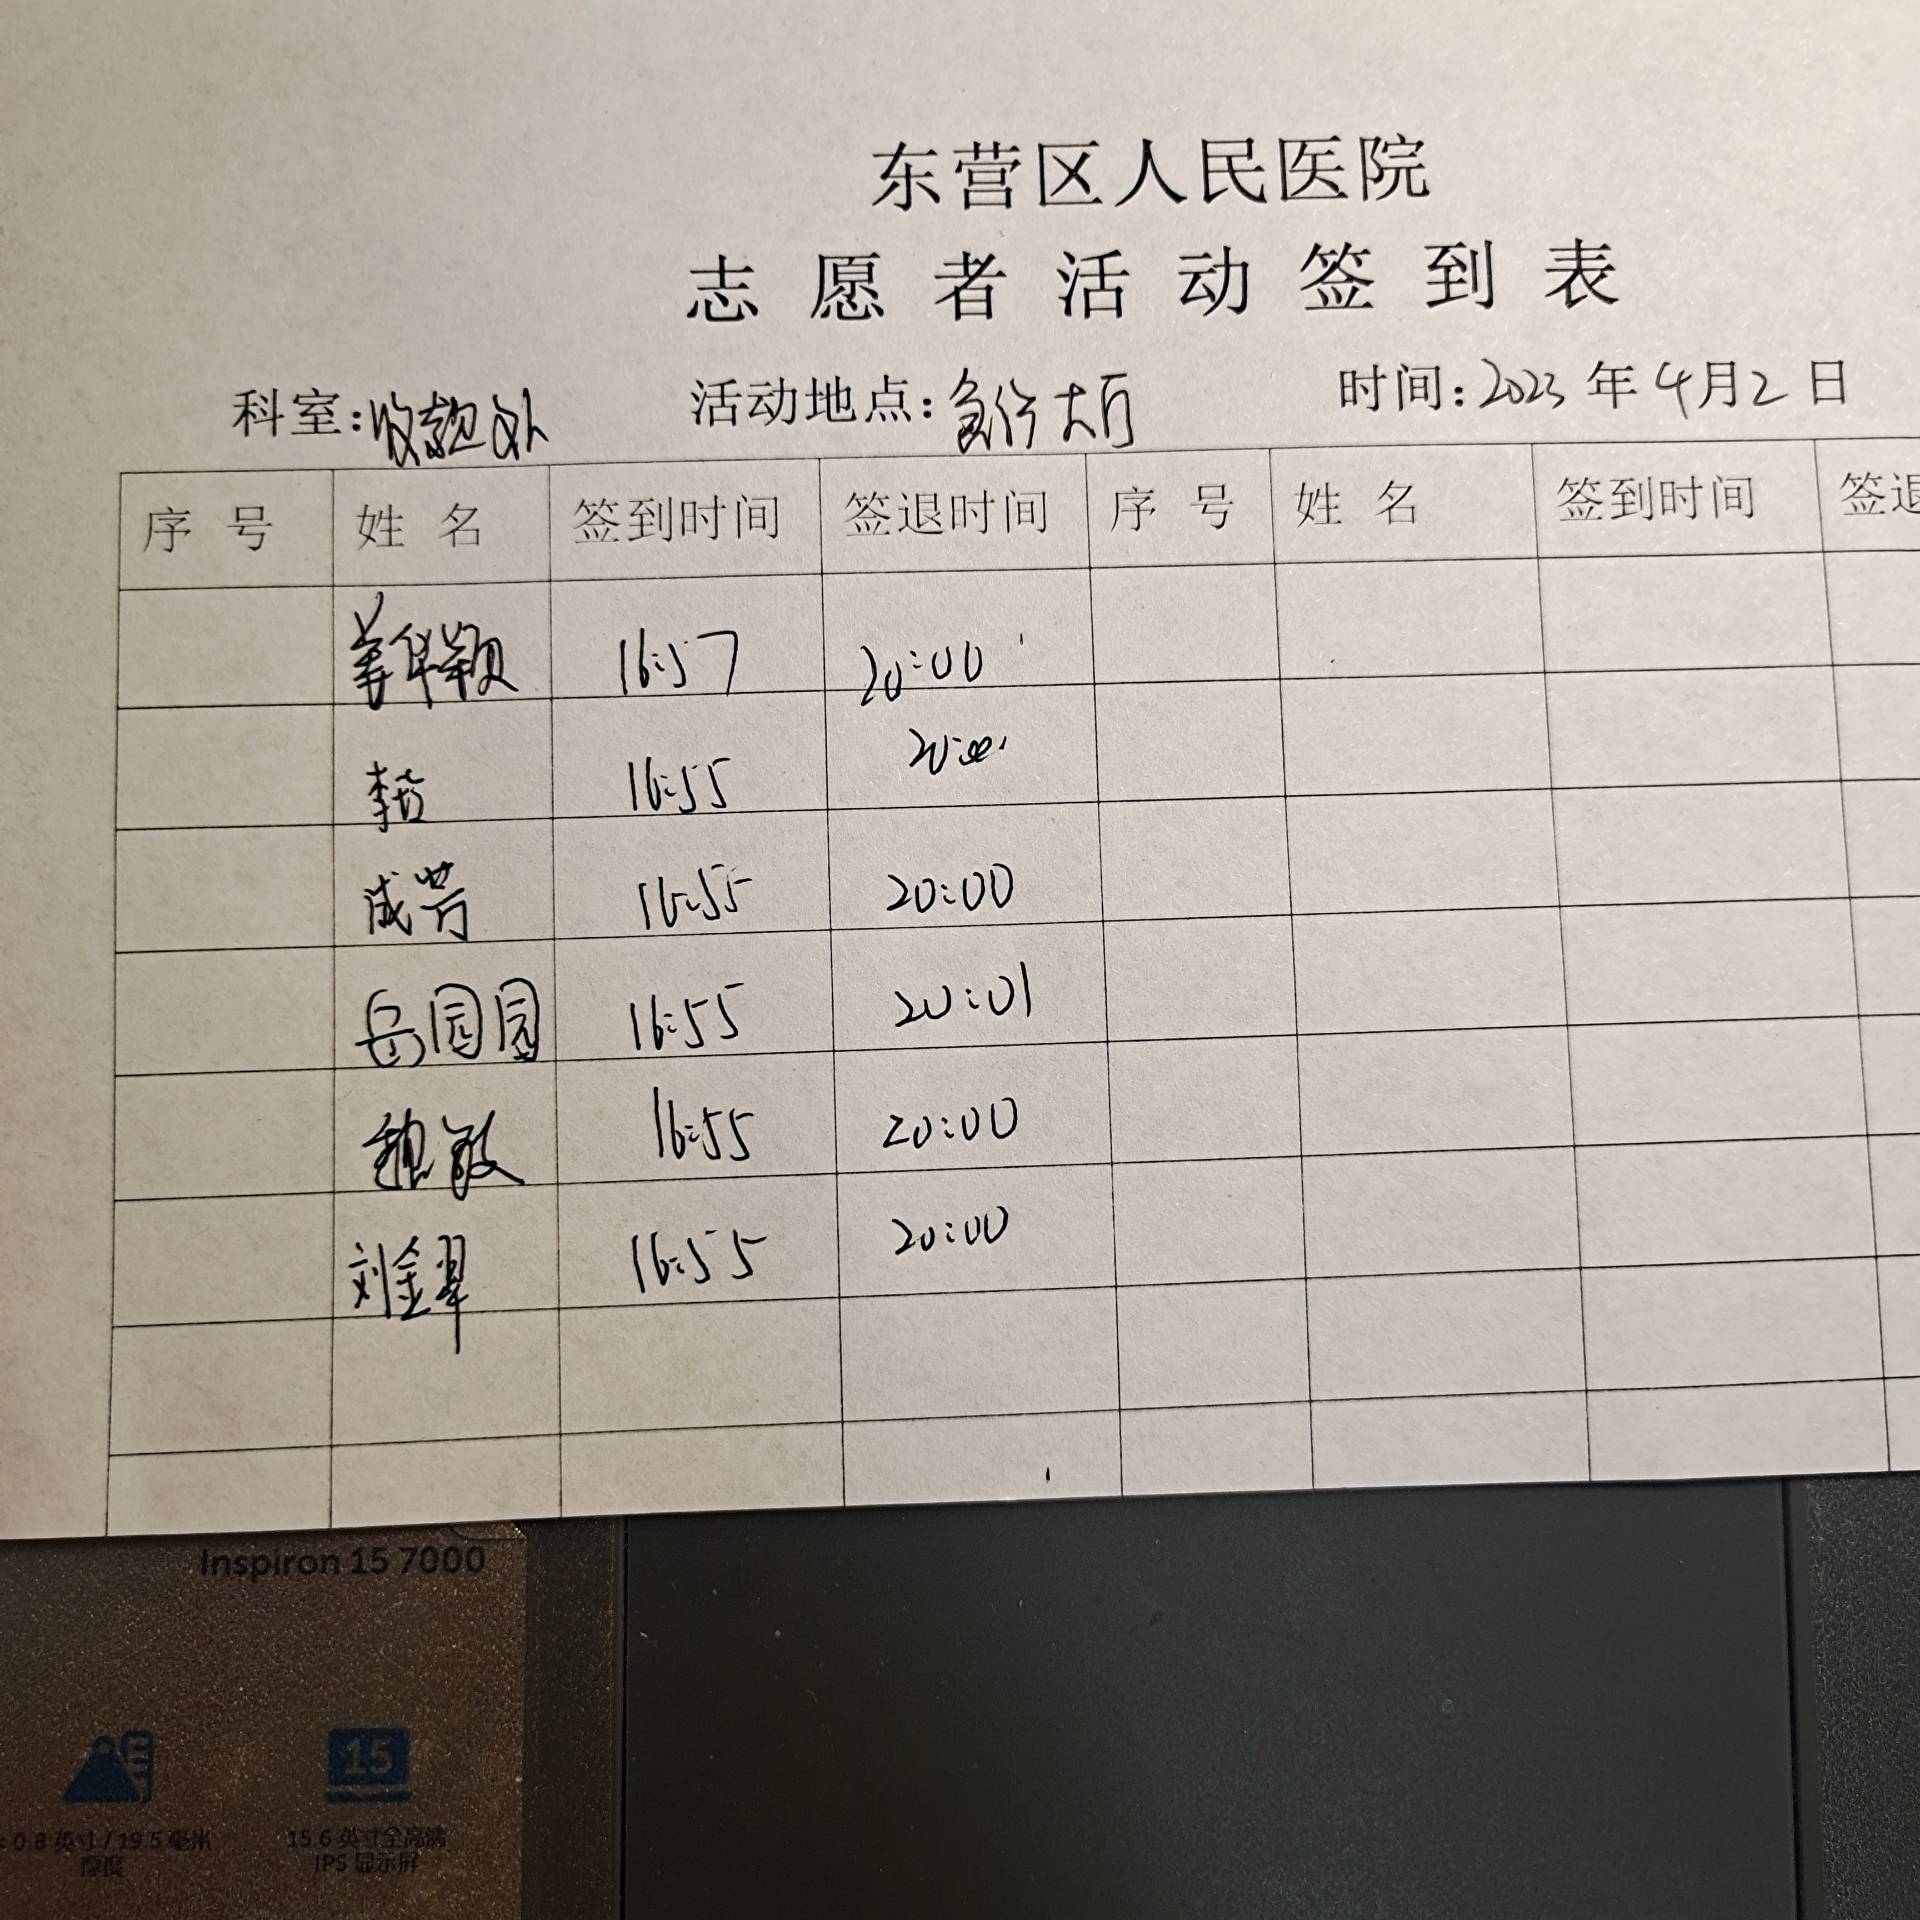 东营区人民医院
志愿者活动签到表
科室:收款处 活动地点:急诊大厅 时间:2023年4月2日
序号 姓名 签到时间 签退时间 序号 姓名 签到时间 签退
姜华颖 16:57 20:00
李 16:55 20:00
成芳 16:55 20:00
岳园园 16:55 20:01
魏敏 16:55 20:00
刘金翠 16:55 20:00
Inspiron 15 7000
15
0.8 英寸/19.5 毫米 15.6 英寸全高清
厚度 IPS 显示屏